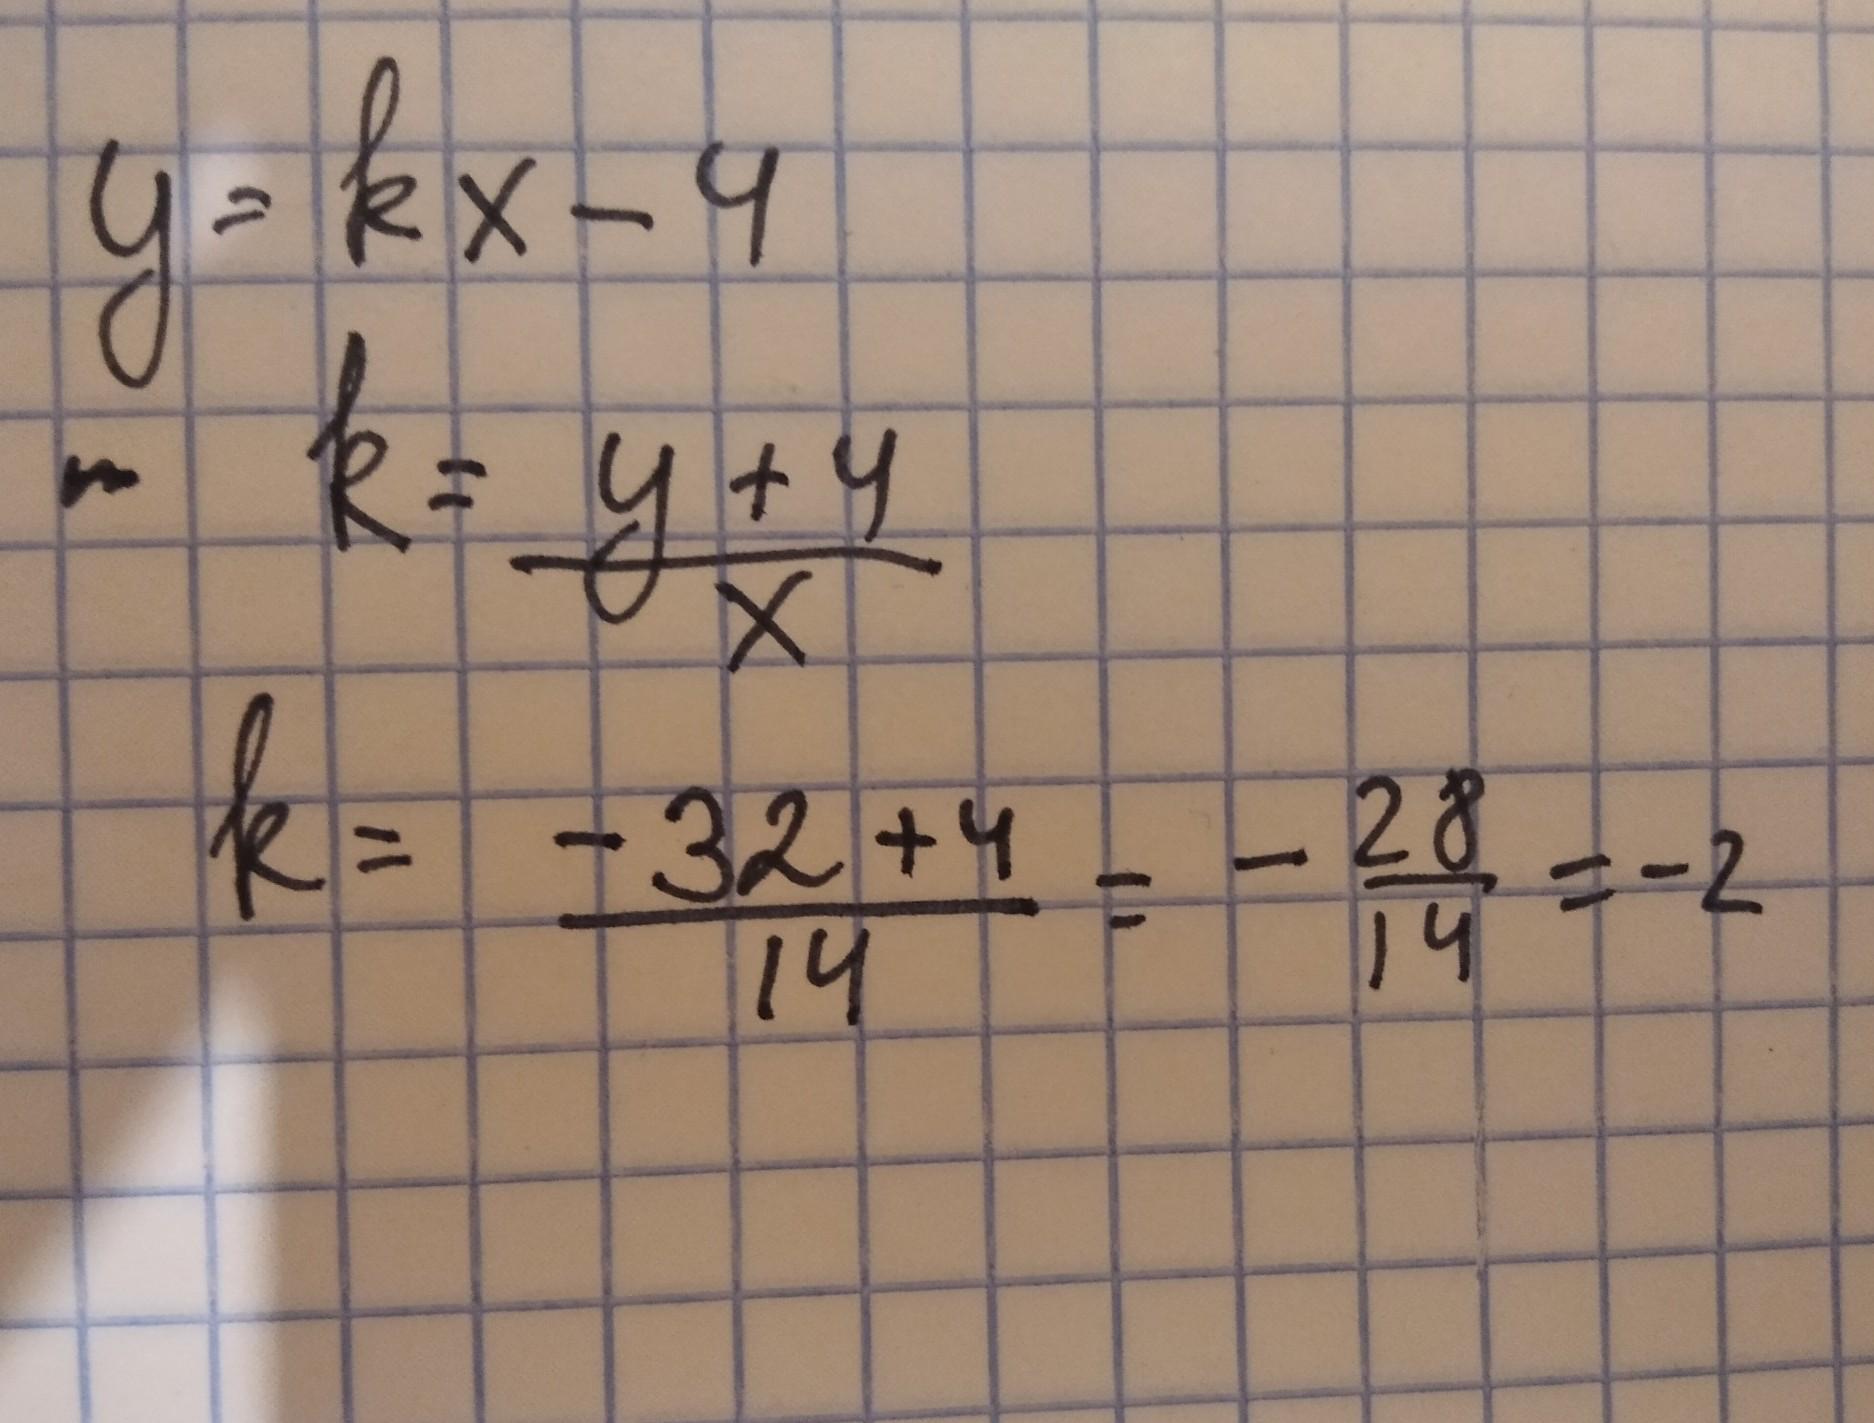 y = kx - 4
k = (y + 4) / x
k = (-32 + 4) / 14 = - 28/14 = -2